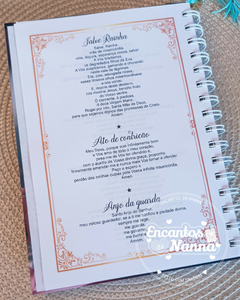 Salve Rainha
Salve, Rainha
mãe de misericórdia,
vida, doçura, esperança nossa, salve!
A Vós bradamos,
os degredados filhos de Eva.
A Vós suspiramos, gemendo e chorando
neste vale de lágrimas.
Eia, pois, advogada nossa,
esses vossos olhos misericordiosos
a nós volvei.
E, depois deste desterro,
nos mostrai Jesus, bendito fruto
do Vosso ventre.
Ó clemente, ó piedosa,
ó doce Virgem Maria.
Rogai por nós, Santa Mãe de Deus,
para que sejamos dignos das promessas de Cristo.
Amém.
Ato de contrição
Meu Deus, porque sois infinitamente bom
e Vos amo de todo o meu coração,
pesa-me de Vos ter ofendido e,
com o auxílio da Vossa divina graça, proponho
firmemente emendar-me e nunca mais Vos tornar a ofender.
Peço e espero o
perdão das minhas culpas pela Vossa infinita misericórdia.
Amém.
Anjo da guarda
Santo Anjo do Senhor,
meu zeloso guardador, se a ti me confiou a piedade divina
sempre me rege,
me guarde,
me governe,
Amém.
Encantos
Nanna